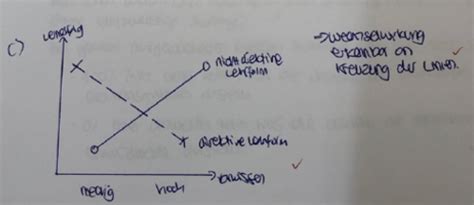 c) Lernerfolg
nicht direktive
Lernform
→ Wechselwirkung
erkennbar an
Kreuzung der Linien.
direktive Lernform
niedrig hoch Vorwissen